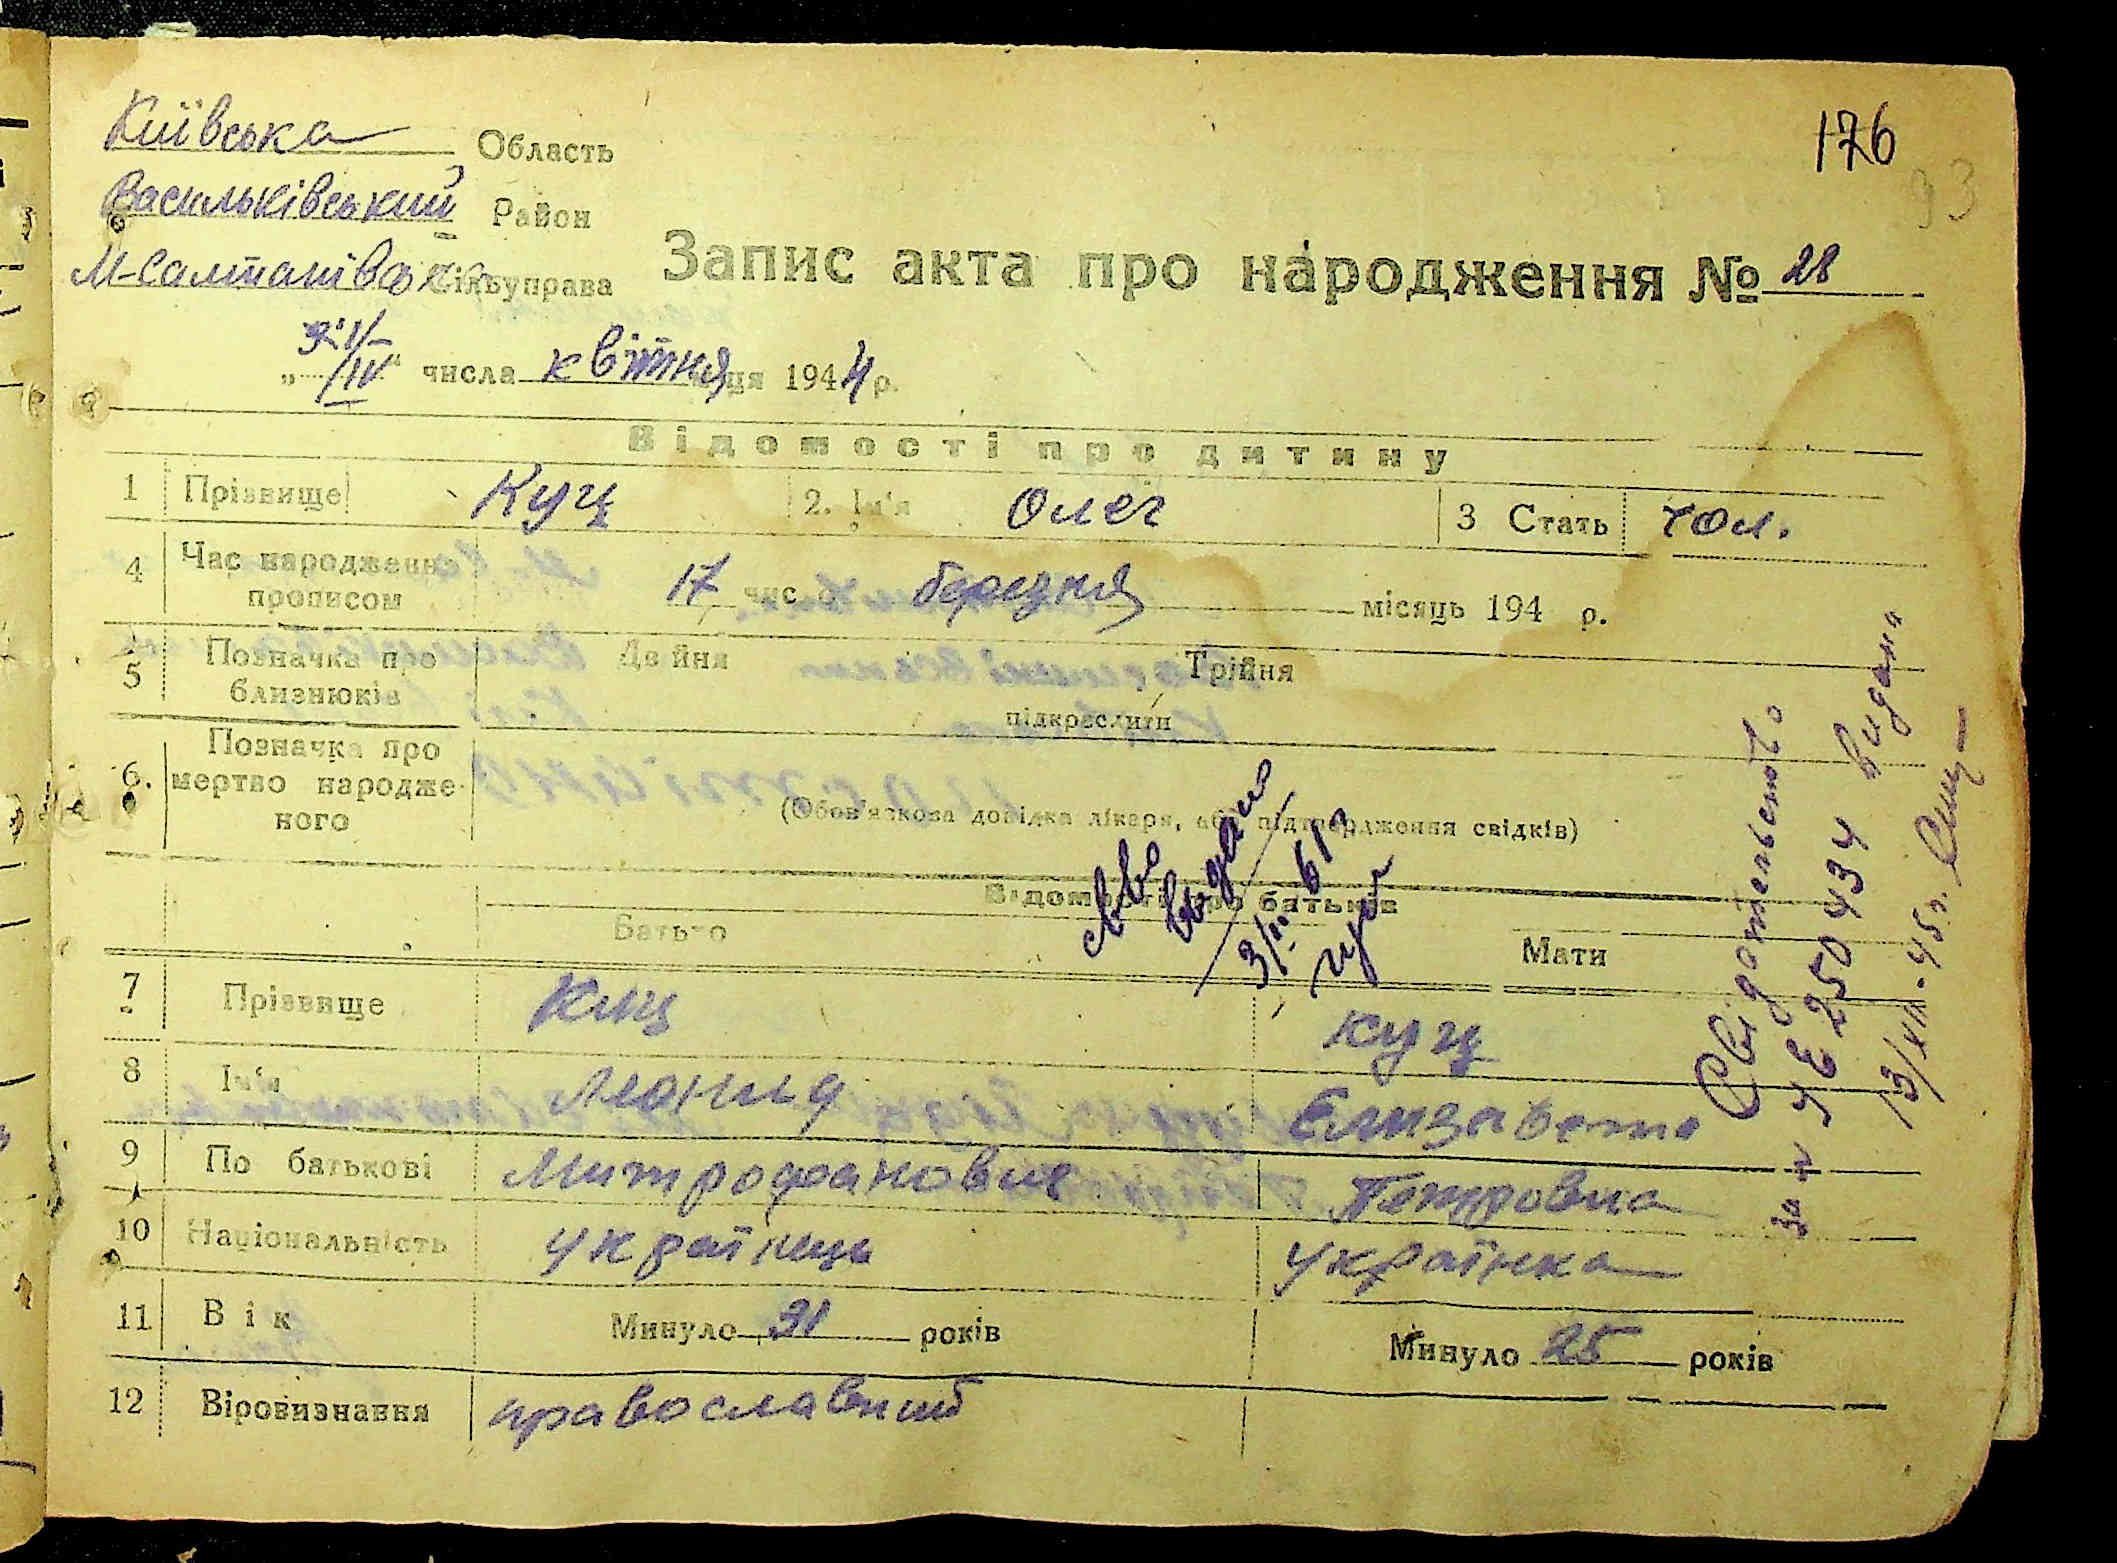 Київська Область
176
93
Васильківський Район
М-Салтанівська Сільуправа
Запис акта про народження № 28
числа квітня ця 1944 р.
Відомості про дитину
1 Прізвище Куц 2. Ім'я Олег 3 Стать чол.
4 Час народження прописом 17 чис березня місяць 194 р.
5 Позначка про близнюків Двійня Трійня
підкреслити
6. Позначка про мертво народженого
(Обов'язкова довідка лікаря, або підтвердження свідків)
Відомості про батьків
Батько Мати
7 Прізвище Куц Куц
8 Ім'я Леонид Елизавета
9 По батькові Митрофанович Петровна
10 Національність українець українка
11 Вік Минуло 31 років Минуло 25 років
12 Віровизнання православний
видано
Свідотельство
за № 250434 видана
13/XII-45р.